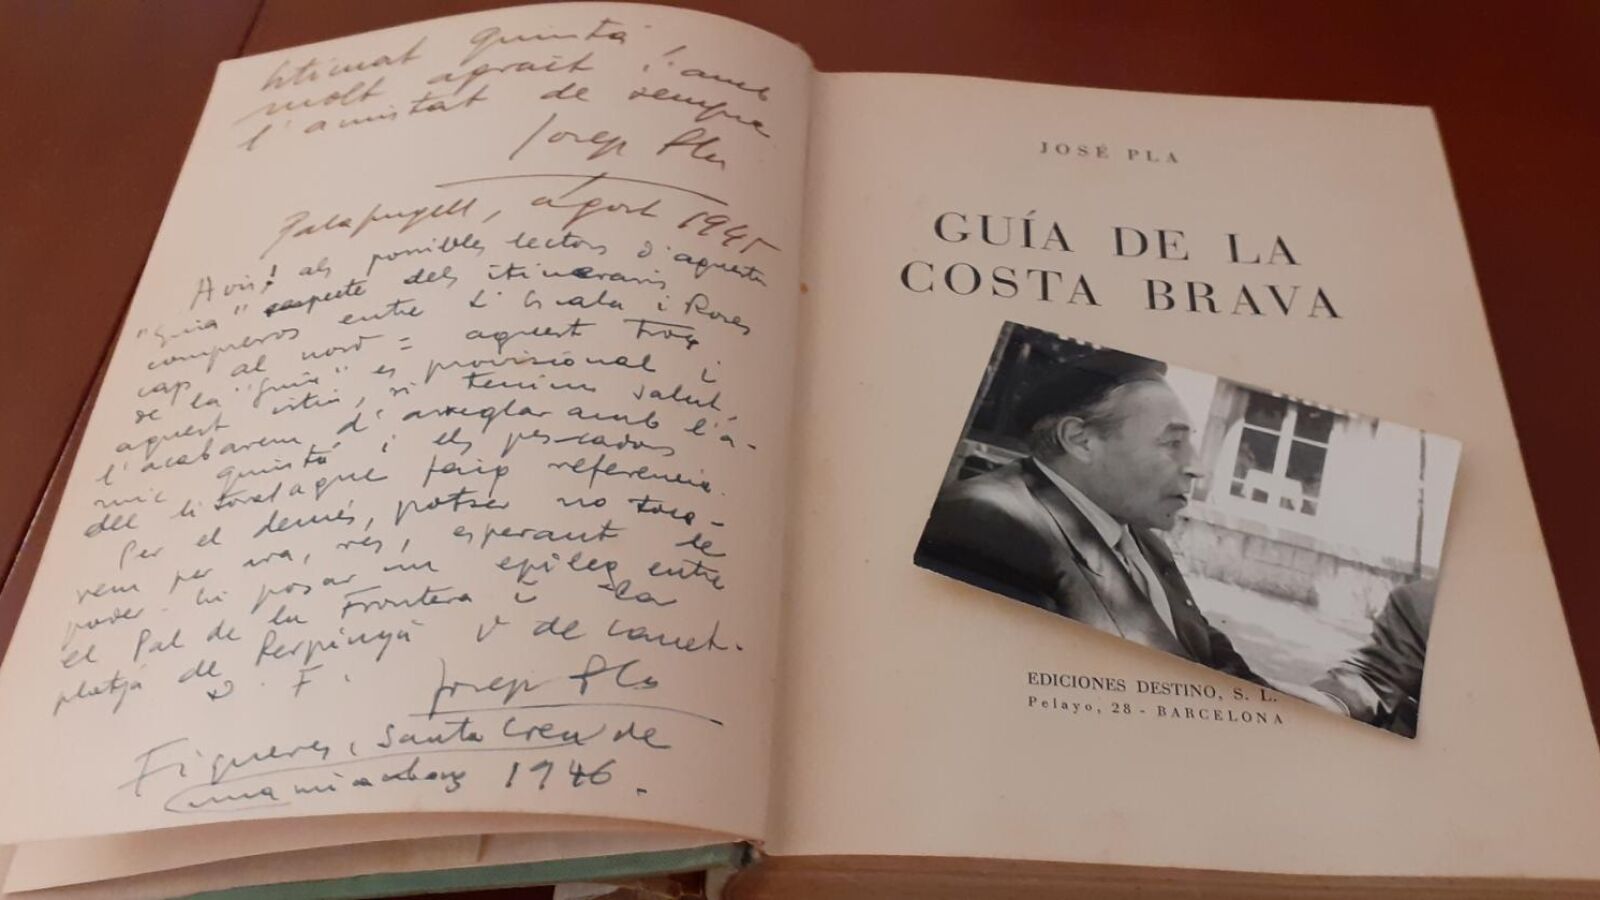 Estimat Quintà!
molt agraït i amb
l'amistat de sempre
Josep Pla
Palafrugell, agost 1945
Avís! als possibles lectors d'aquesta
"Guia" respecte dels itineraris
compresos entre L'Escala i Roses
cap al nord = aquest troç
de la "Guia" es provisional i
aquest istiu, si tenim salut,
l'acabarem d'arreglar amb l'a-
mic Quintà i els pescados
del litoral a que faig referencia.
Per el demés, potser no toca-
rem per ara, res, esperant de
poder-hi posar un epíleg entre
el Pal de la Frontera i la
platja de Perpinyà V de Canet.
D. F.
Josep Pla
Figueres, Santa Creu de
1946.
JOSÉ PLA
GUÍA DE LA
COSTA BRAVA
EDICIONES DESTINO, S. L.
Pelayo, 28 - BARCELONA